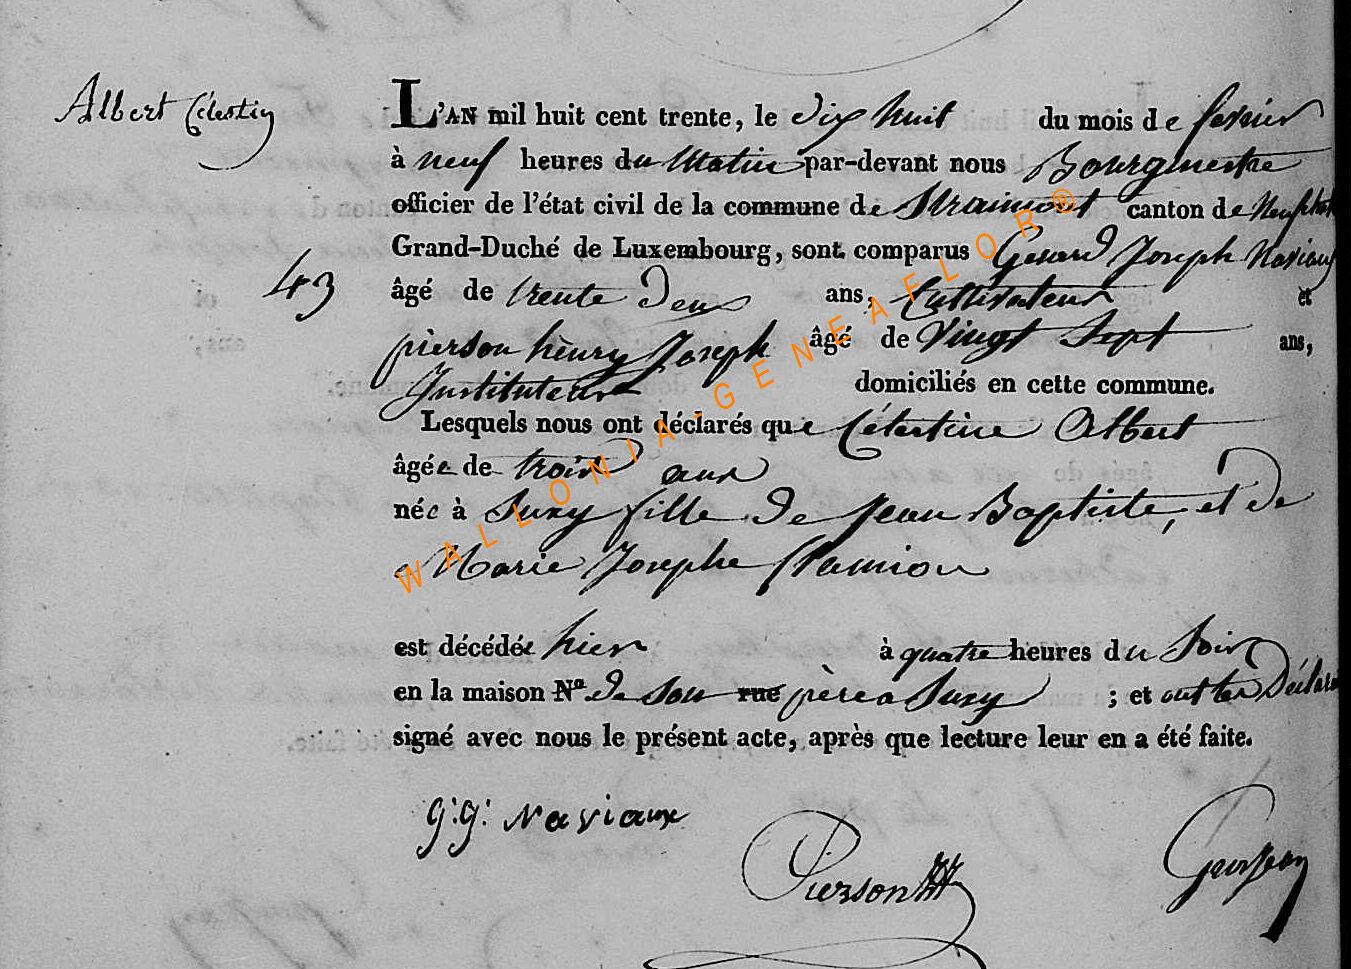 Albert Célestin
L'AN mil huit cent trente, le dix huit du mois de fevrier
à neuf heures du Matin par-devant nous Bourgmestre
officier de l'état civil de la commune de Straimont canton de Neufchat
Grand-Duché de Luxembourg, sont comparus Gerard Joseph Naviaux
43
âgé de trente deux ans, Cultivateur et
pierson henry Joseph âgé de Vingt Sept ans,
Instituteur domiciliés en cette commune.
Lesquels nous ont déclarés que Célestine Albert
âgée de trois ans
née à Suxy fille de Jean Baptiste, et de
Marie Josephe
est décédée hier à quatre heures du Soir
en la maison Nº de son rue père a Suxy ; et ont les Déclara
signé avec nous le présent acte, après que lecture leur en a été faite.
G: G: Naviaux
Pierson HH
Grosjean
WALLONIA-GENEAFLOR®